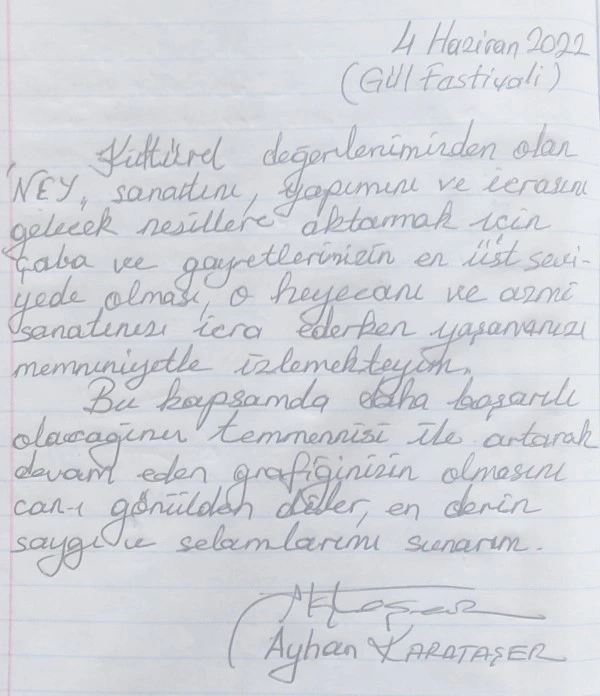 4 Haziran 2022
(Gül Fastivali)
Kültürel değerlerimizden olan
NEY, sanatını, yapımını ve icrasını
gelecek nesillere aktarmak için
çaba ve gayretlerinizin en üst sevi-
yede olması, o heyecanı ve azmi
sanatınızı icra ederken yaşamanızı
memnuniyetle izlemekteyim.
Bu kapsamda daha başarılı
olacağınız temmennisi ile artarak
devam eden grafiğinizin olmasını
can-ı gönülden diler, en derin
saygı ve selamlarımı sunarım.
Ayhan KARATAŞER